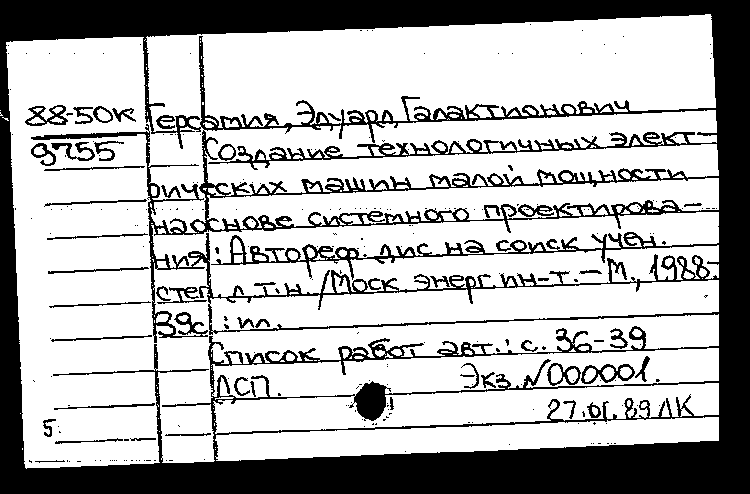 88-50к Герсамия, Эдуард Галактионович
9755 Создание технологичных элект-
рических машин малой мощности
на основе системного проектирова-
ния: Автореф. дис на соиск учен.
степ. д.т.н. /Моск. энерг. ин-т. – М., 1988.
39с. : ил.
Список работ авт.: с. 36-39
ДСП. Экз. N000001.
27.01.89 ЛК
5.